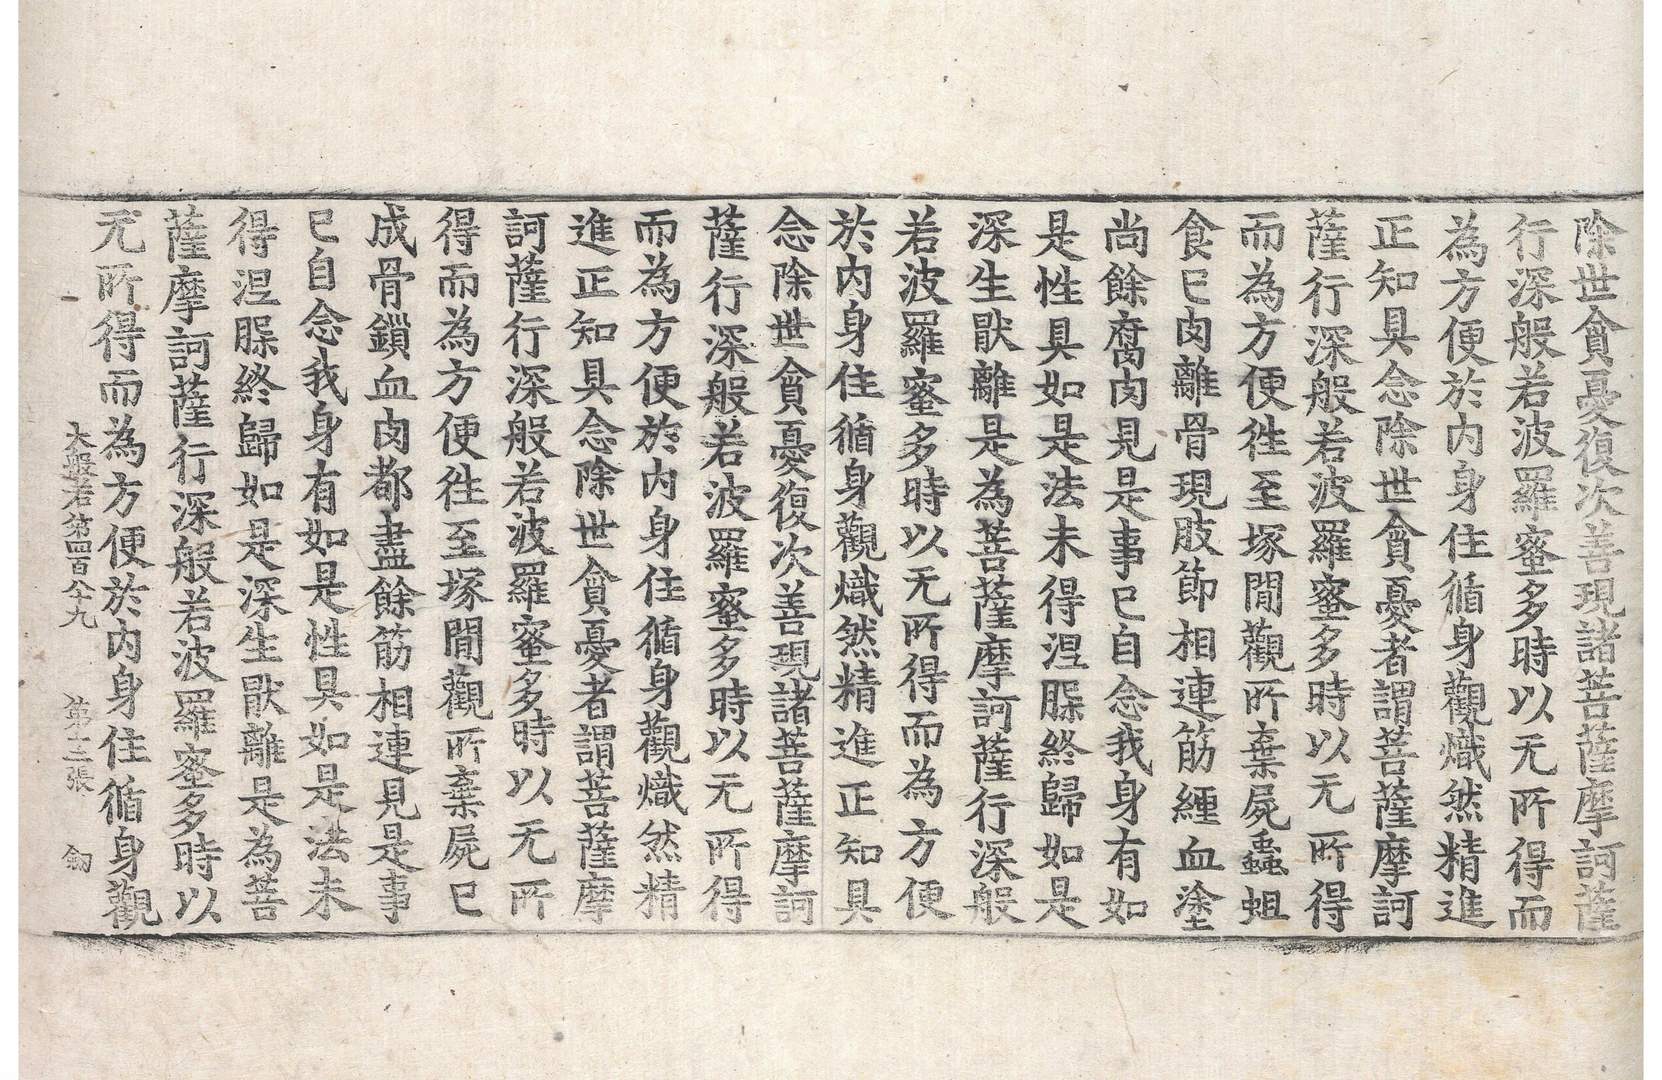 除世貪憂復次善現諸菩薩摩訶薩
行深般若波羅蜜多時以无所得而
為方便於内身住循身觀熾然精進
正知具念除世貪憂者謂菩薩摩訶
薩行深般若波羅蜜多時以无所得
而為方便往至塚閒觀所棄屍蟲蛆
食已肉離骨現肢節相連筋纏血塗
尚餘腐肉見是事已自念我身有如
是性具如是法未得涅槃終歸如是
深生猒離是為菩薩摩訶薩行深般
若波羅蜜多時以无所得而為方便
於内身住循身觀熾然精進正知具
念除世貪憂復次善現諸菩薩摩訶
薩行深般若波羅蜜多時以无所得
而為方便於内身住循身觀熾然精
進正知具念除世貪憂者謂菩薩摩
訶薩行深般若波羅蜜多時以无所
得而為方便往至塚閒觀所棄屍已
成骨鎖血肉都盡餘筋相連見是事
已自念我身有如是性具如是法未
得涅槃終歸如是深生猒離是為菩
薩摩訶薩行深般若波羅蜜多時以
无所得而為方便於内身住循身觀
大般若第四百八十九 第十二張